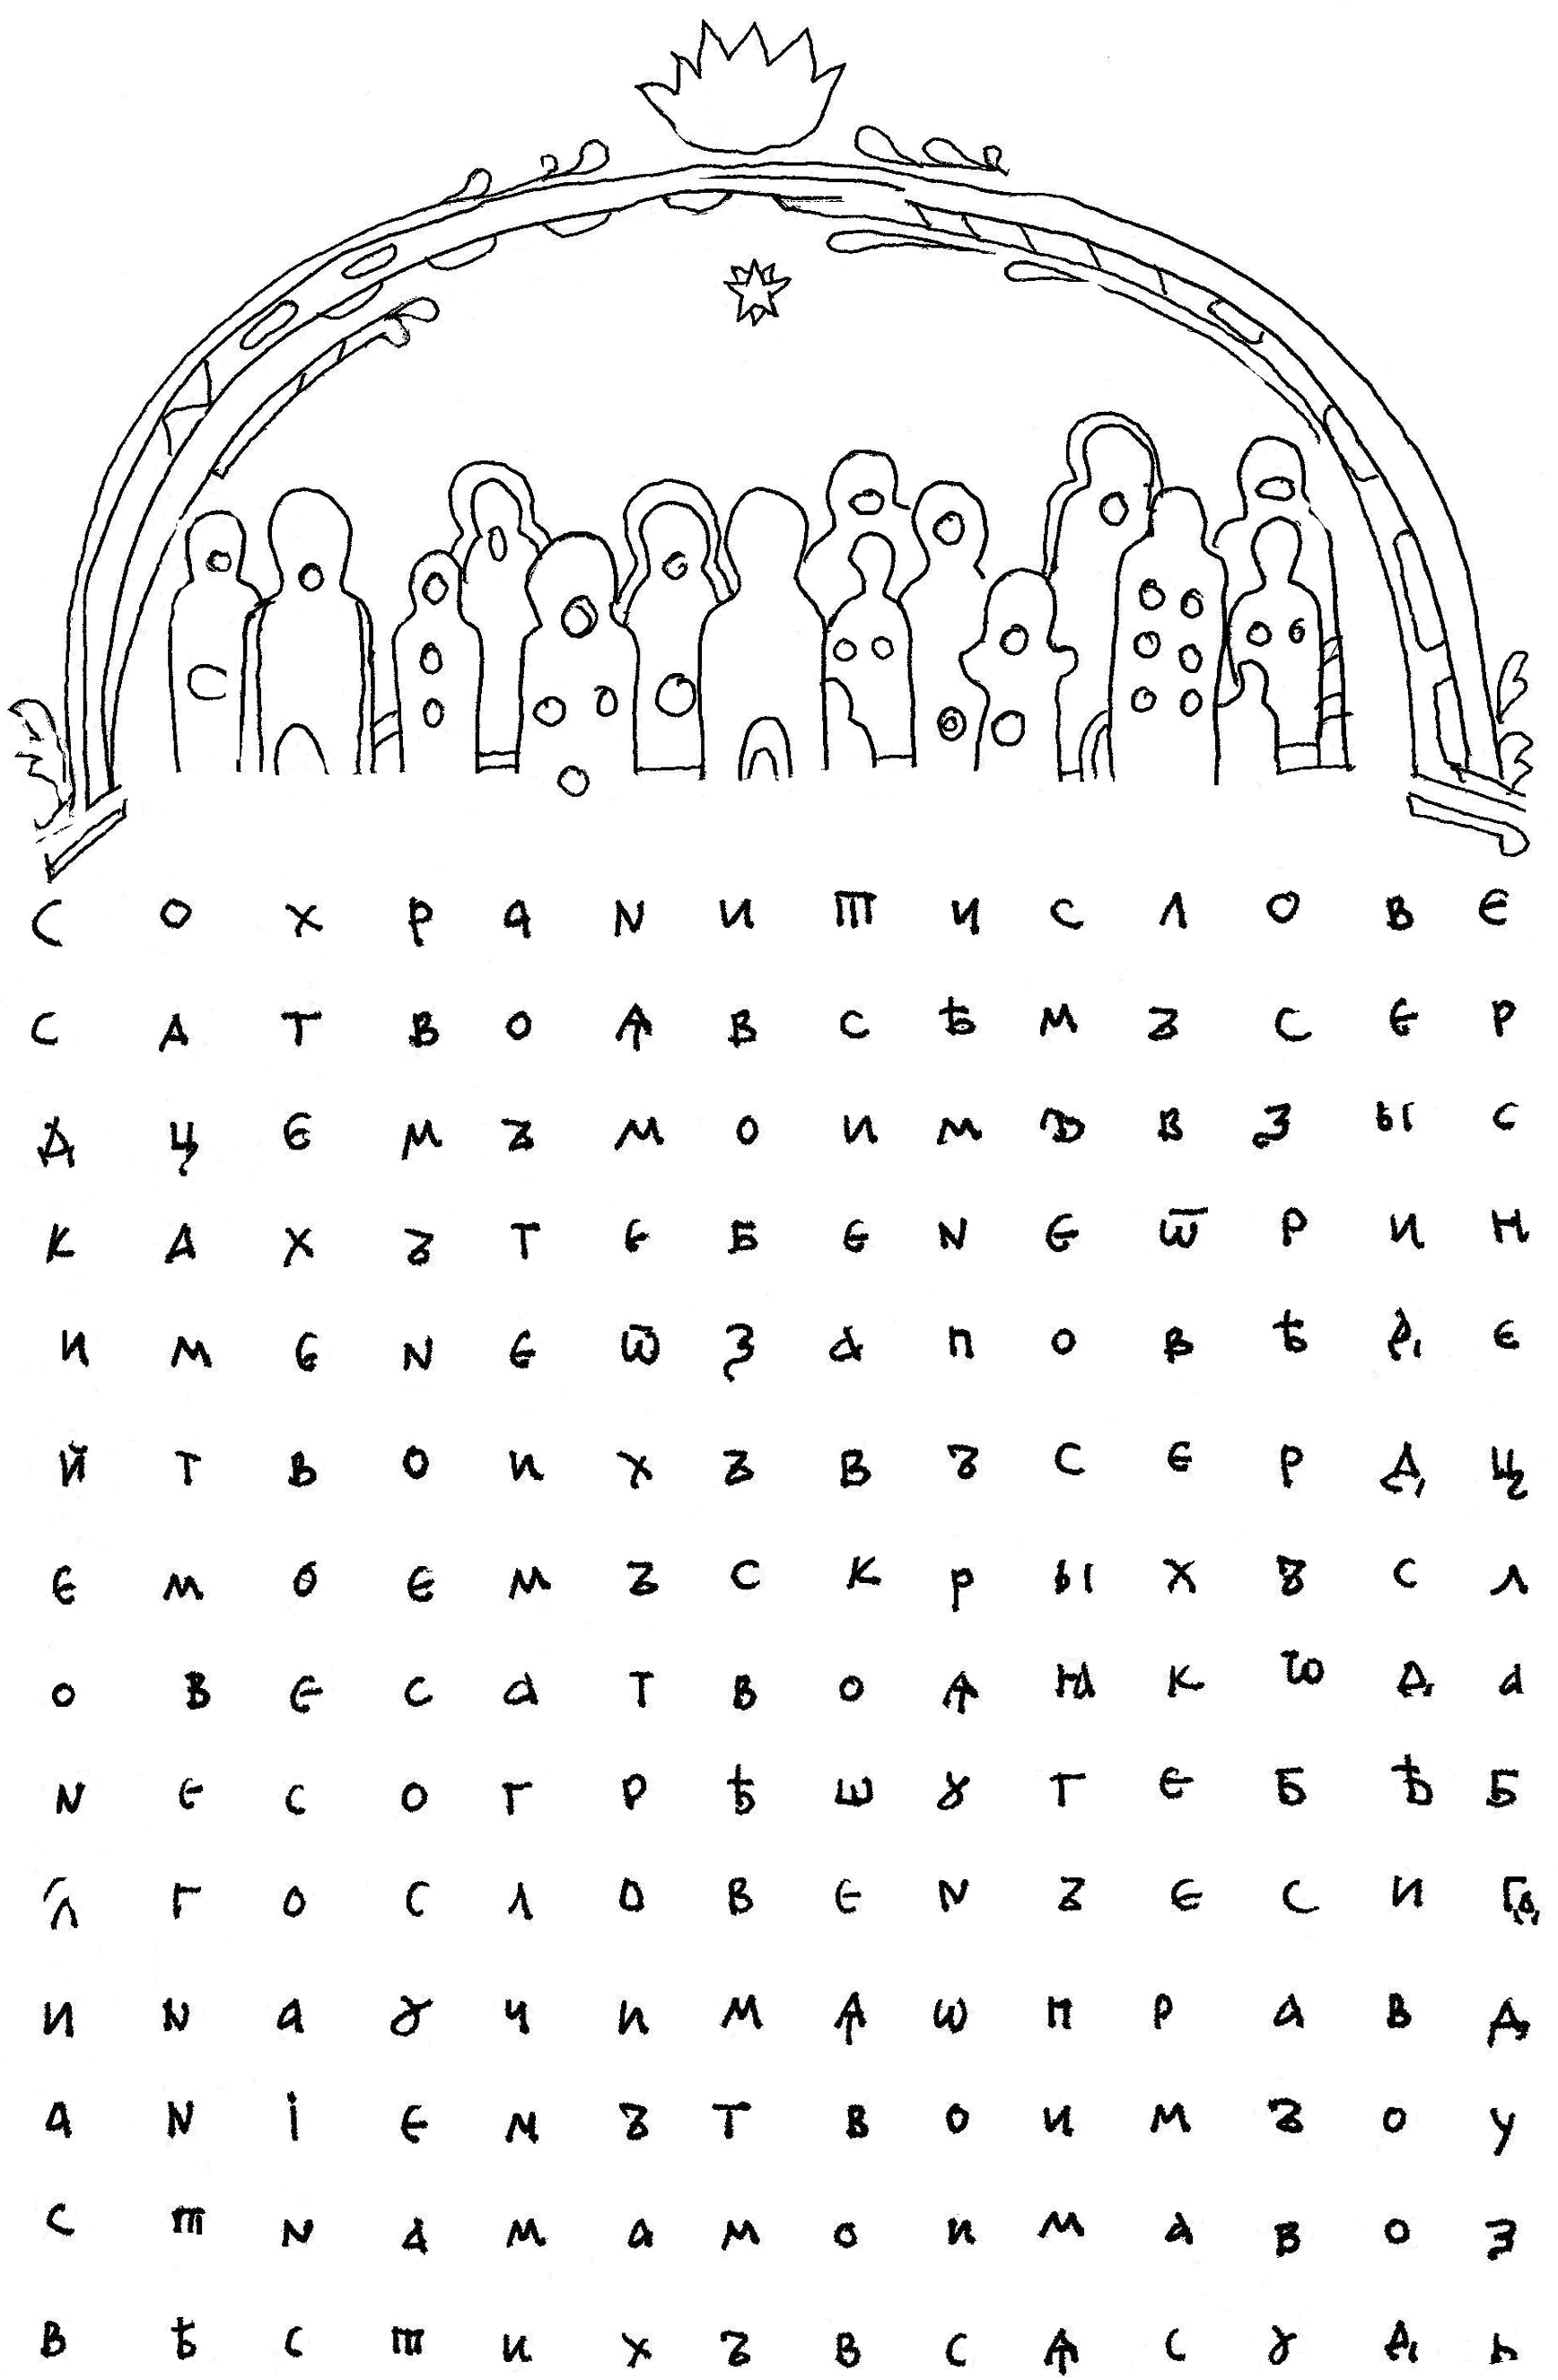 С О Х Р А N И Т И С Л О В Е
С А Т В О Ѧ В С Ѣ М Ъ С Е Р
Д Ц Е М Ъ М О И М Ъ В З Ы С
К А Х Ъ Т Е Б Е N Е Ѿ Р И Н
И М Е N Е Ѿ З А П О В Ѣ Д Е
Й Т В О И Х Ъ В Ъ С Е Р Д Ц
Е М О Е М Ъ С К Р Ы Х Ъ С Л
О В Е С А Т В О Ѧ Ꙗ К Ѡ Д А
N Е С О Г Р Ѣ Ш Ꙋ Т Е Б Ѣ Б
Л҃ Г О С Л О В Е N Ъ Е С И ГД
И N А Ꙋ Ч И М Ѧ Ѡ П Р А В Д
А N І Е М Ъ Т В О И М Ъ О У
С Т N А М А М О И М А В О З
В Ѣ С Т И Х Ъ В С Ѧ С Ꙋ Д Ь